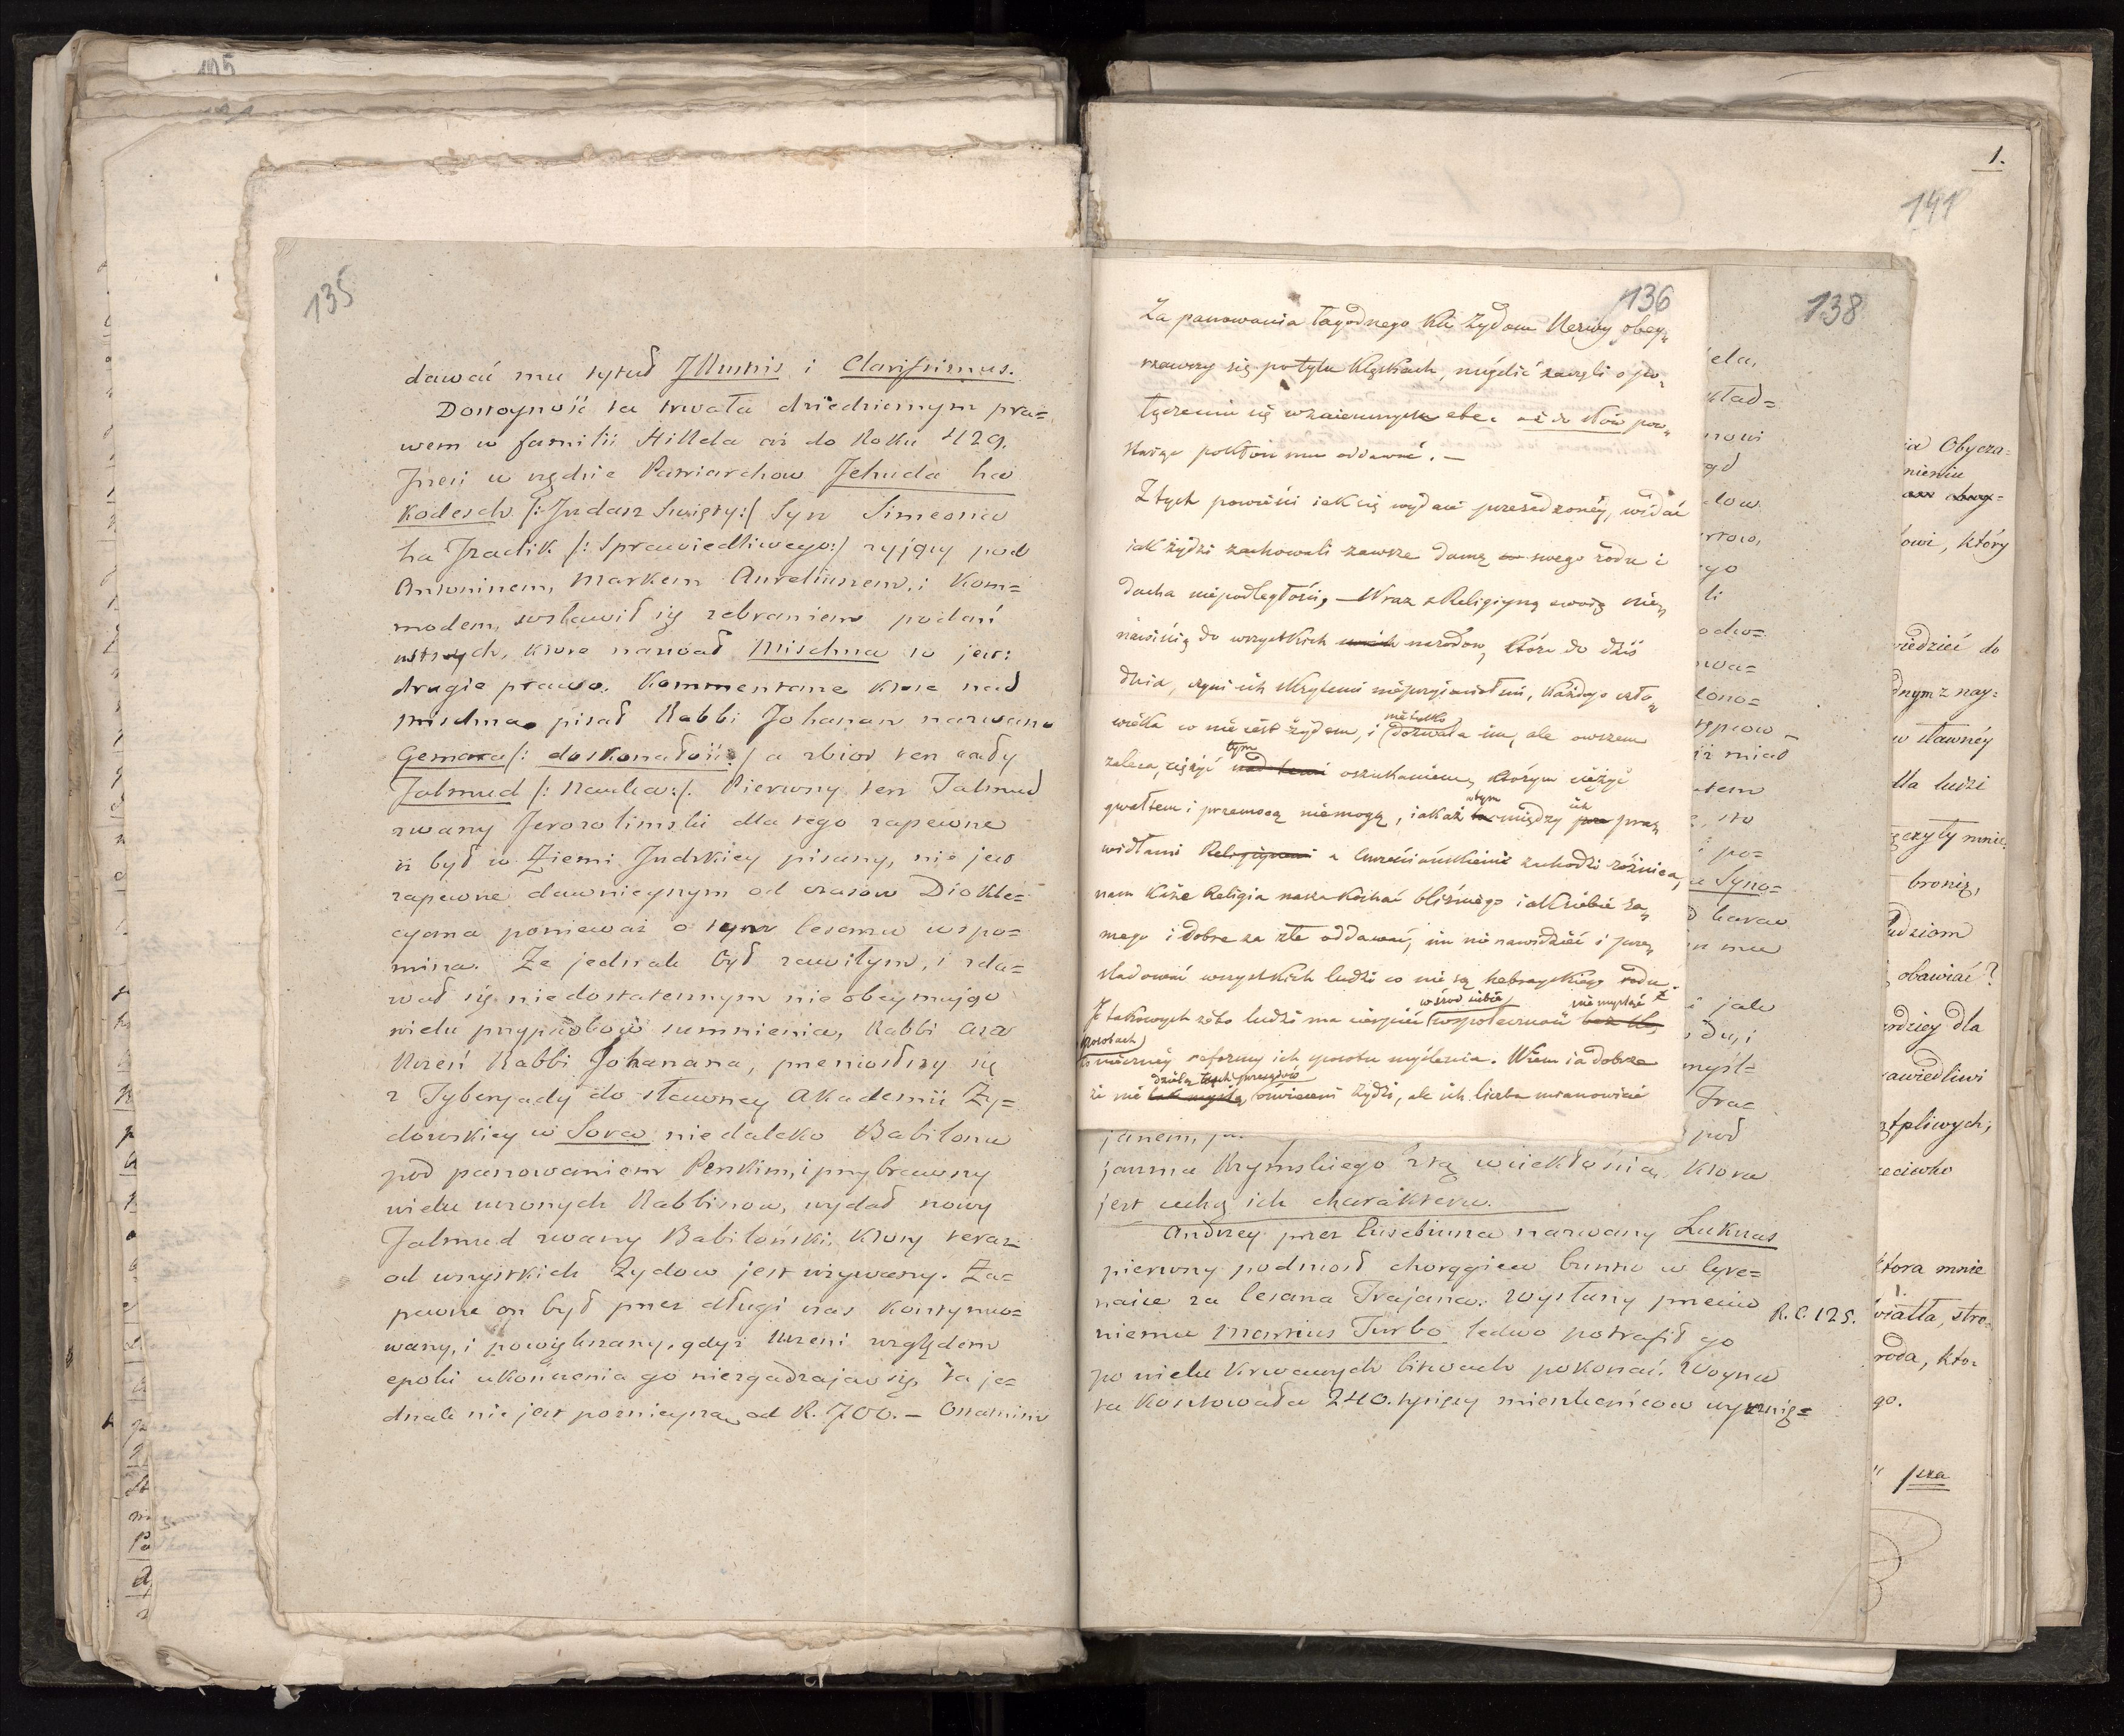 135
dawać mu tytuł Jllustris i Clarissimus.
Dostoyność ta trwała dziedzicznym pra=
wem w familii Hillela aż do Roku 429.
Trzeci w rzędzie Patriarchow Jehuda ha
Kodesch /:Judasz Święty:/ Syn Simeona
ha Tzadik /:Sprawiedliwego:/ zyjący pod
Antoninem, Markem Aureliuszem, i Kom=
modem, wsławił się zebraniem podań
ustnych, ktore nazwał Mischna to jest:
drugie prawo. Kommentarze ktore nad
Mischną pisał Rabbi Johanan nazwano
Gemara /: doskonałość:/ a zbior ten cały
Talmud /: Nauka:/. Pierwszy ten Talmud
zwany Jerozolimski dla tego zapewne
iż był w Ziemi Judzkiey pisany, nie jest
zapewne dawnieyszym od czasow Diokle=
cyana ponieważ o tym Cesarzu wspo=
mina. Ze jednak był zawiłym, i zda=
wał się niedostatecznym nie obeymując
wielu przypadkow sumnienia, Rabbi Aza
Uczeń Rabbi Johanana, przeniosłszy się
z Tyberyady do sławney Akademii Zy=
dowskiey w Sora niedaleko Babilonu
pod panowaniem Perskim, i przybrawszy
wielu uczonych Rabbinow, wydał nowy
Talmud zwany Babiloński, ktory teraz
od wszystkich Zydow jest używany. Za=
pewne on był przez długi czas kontynuo=
wany, i powiększany, gdyż Uczeni względem
epoki ukończenia go niezgadzają się, ta je=
dnak nie jest poznieyszą od R. 700. – Ostatnim
136
Za panowania łagodnego ku Zydom Nerwy obey„
rzawszy się po tylu klęskach, myślić zaczęli o po„
łączeniu się wzaiemnym
Z tych powieści iak się wydaie przesadzonéy, widać
iak żydzi zachowali zawsze dumę swego rodu i
ducha niepodległości, – Wraz z Religiyną swoią nie„
nawiścią do wszystkich narodow, która do dziś
dnia, czyni ich skrytemi nieprzyiaciołmi, każdego czło„
wieka co nie iest żydem, i nietylko dozwala im, ale owszem
zaleca, ciężyć tym oszukaniem, którym ciężyć
gwałtem i przemocą niemogą, iakaż w tym między ich pra„
widłami Religiynemi a Chrześciańskiemi zachodzi różnica,
nam każe Religia nasza kochać bliźniego iak siebie sa„
mego i dobre za złe oddawać, im nienawidzieć i prze„
sladować wszystkich ludzi co nie są hebrayskiego rodu.
Jz takowych zaś to ludzi ma cierpieć wśrod siebie społeczność nie myśląc
o sposobach
reformy ich sposobu myślenia. Wiem ia dobrze
że nie dzielą tych przesądów oświeceni Zydzi, ale ich liczba mianowicie
138
janem,
jarzma Rzymskiego z tą wściekłością ktora
jest cechą ich charakteru.
Andrzey przez Euzebiusza nazwany Lukuas
pierwszy podniosł chorągiew buntu w Cyre=
naice za Cesarza Trajana. Wysłany przeciw
R.C. 125.
niemu Martius Turbo ledwo potrafił go
po wielu krwawych bitwach pokonać. Woyna
ta kosztowała 240. tysięcy mieszkańcow wyrznię=
1.
141
Obycza=
owi, który
wiedzieć do
dnym z nay=
w sławnéy
dla ludzi
bronią,
ludziom
obawiać?
rdziey dla
awiedliwi
ątpliwych,
ktora mnie
wiatła, stro
roda, kto=
go.
pra